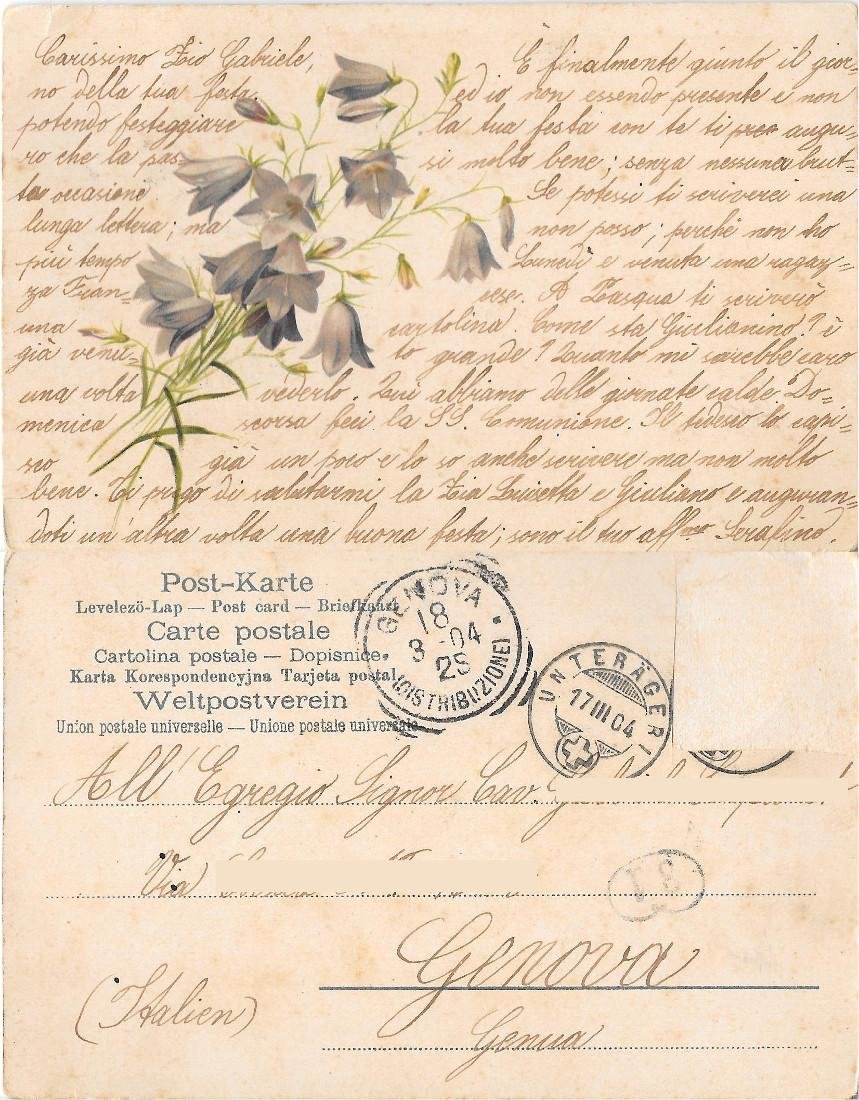 Carissimo Zio Gabriele, È finalmente giunto il gior=
no della tua festa, ed io non essendo presente e non
potendo festeggiare la tua festa con te ti prego augu=
ro che la pas= si molto bene; senza nessuna brut=
ta occasione Se potessi ti scriverei una
lunga lettera; ma non posso; perché non ho
più tempo Lunedì è venuta una ragaz=
za Fran= cese. A Pasqua ti scriverò
una cartolina. Come sta Giulianino? è
già venu= to grande? Quanto mi sarebbe caro
una volta vederlo. Qui abbiamo delle giornate calde. Do=
menica scorsa feci la SS. Comunione. Il tedesco lo capi=
sco già un poco e lo so anche scrivere ma non molto
bene. Ti prego di salutarmi la Zia Luisetta e Giuliano e auguran=
doti un'altra volta una buona festa; sono il tuo aff.mo Serafino.
Post-Karte
Levelezö-Lap — Post card — Briefkaart
Carte postale
Cartolina postale — Dopisnice.
Karta Korespondencyjna Tarjeta postal
Weltpostverein
Union postale universelle — Unione postale universale
GENOVA
18
3-04
2S
(DISTRIBUZIONE)
UNTERÄGERI
17 III 04
All' Egregio Signor Cav.
Via
31
Genova
(Italien)
Genua